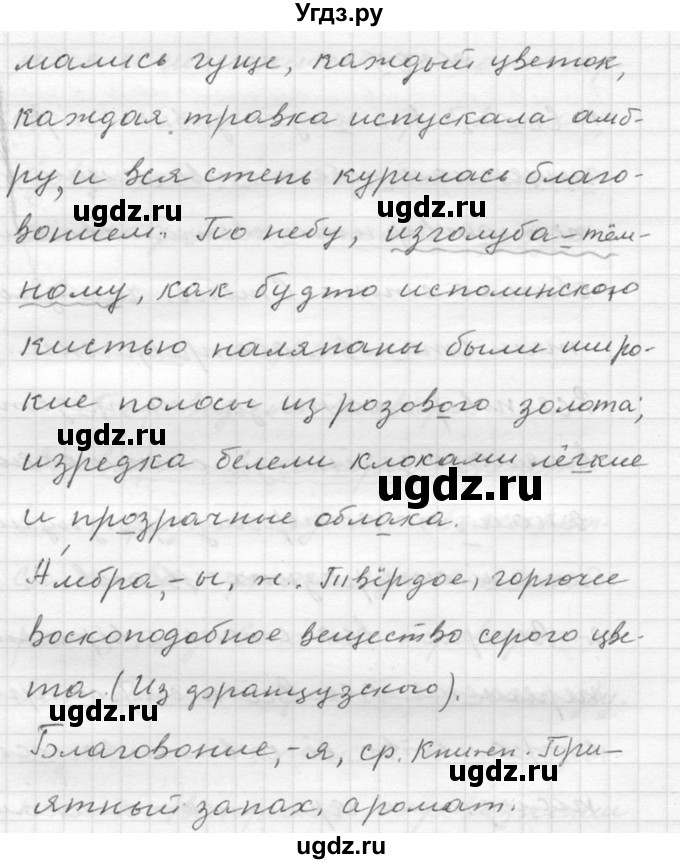 Угдз.ру
мались гуще, каждый цветок,
каждая травка испускала амб-
ру, и вся степь курилась благо-
ugdz.ru ugdz.ru
вонием. По небу, изголуба-тём-
ному, как будто исполинскою
кистью наляпаны были широ-
кие полосы из розового золота;
ugdz.ru
изредка белели клоками лёгкие
ugdz.ru
и прозрачные облака.
Амбра, -ы, ж. Твёрдое, горючее
воскоподобное вещество серого цве-
та. (Из французского).
ugdz.ru
Благовоние, -я, ср. Книжн. При-
ugdz.ru
ятный запах, аромат.
ugdz.ru